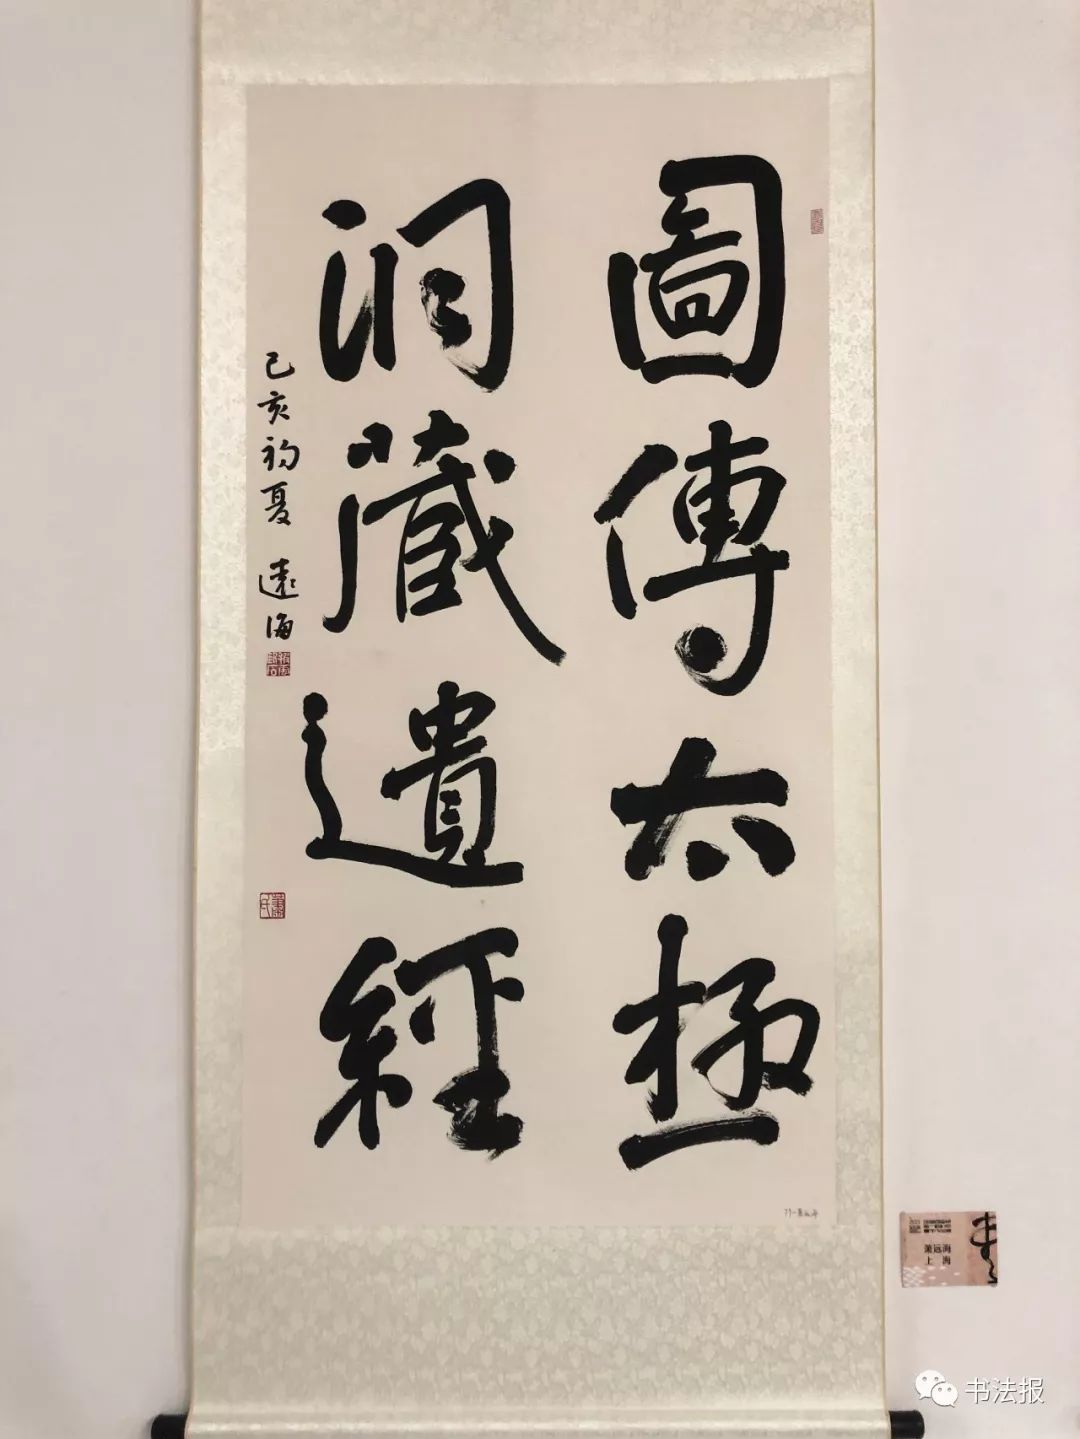 圖傳太極
洞藏遺經
己亥初夏 遠海
萧远海
上海
书法报